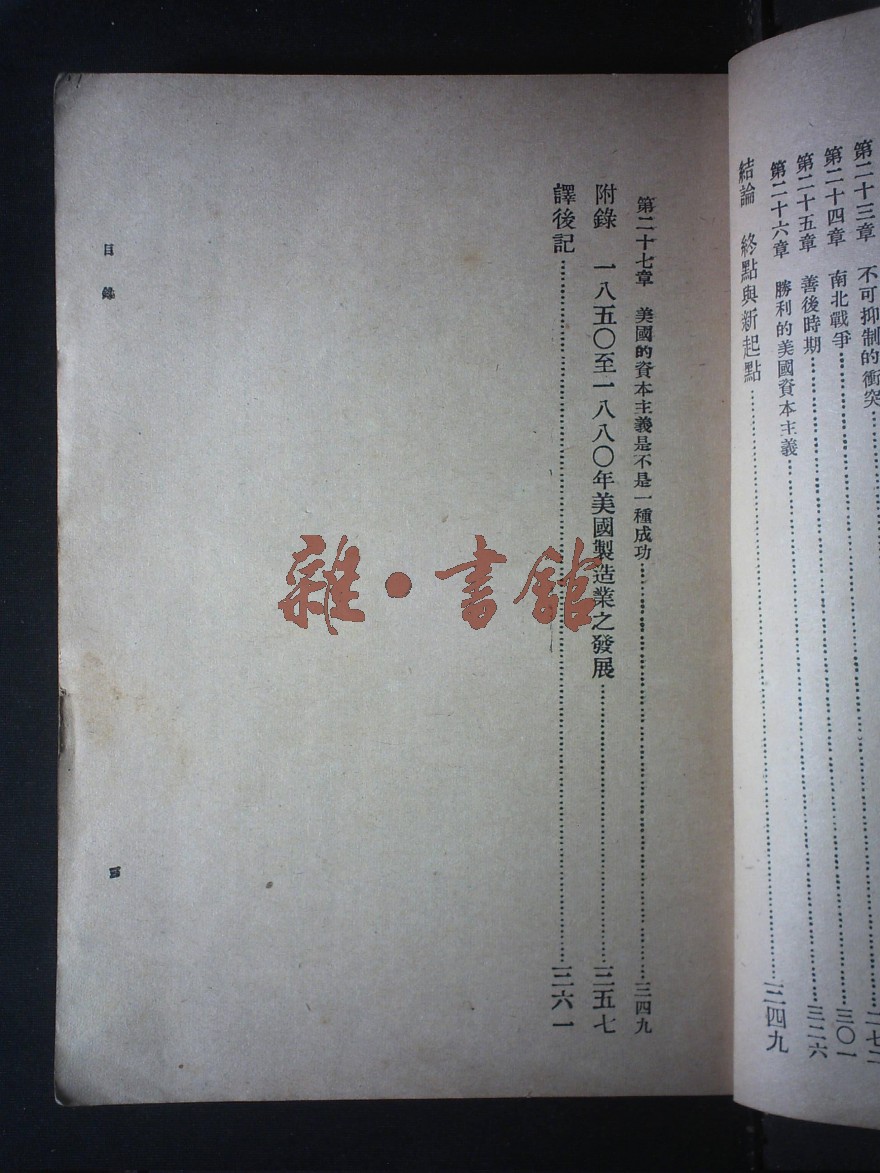 第二十三章　不可抑制的衝突……二七二
第二十四章　南北戰爭……三〇一
第二十五章　善後時期……三二六
第二十六章　勝利的美國資本主義……
結論　終點與新起點……三四九
第二十七章　美國的資本主義是不是一種成功……三四九
附錄　一八五〇至一八八〇年美國製造業之發展……三五七
譯後記……三六一
目錄
三
雜·書館